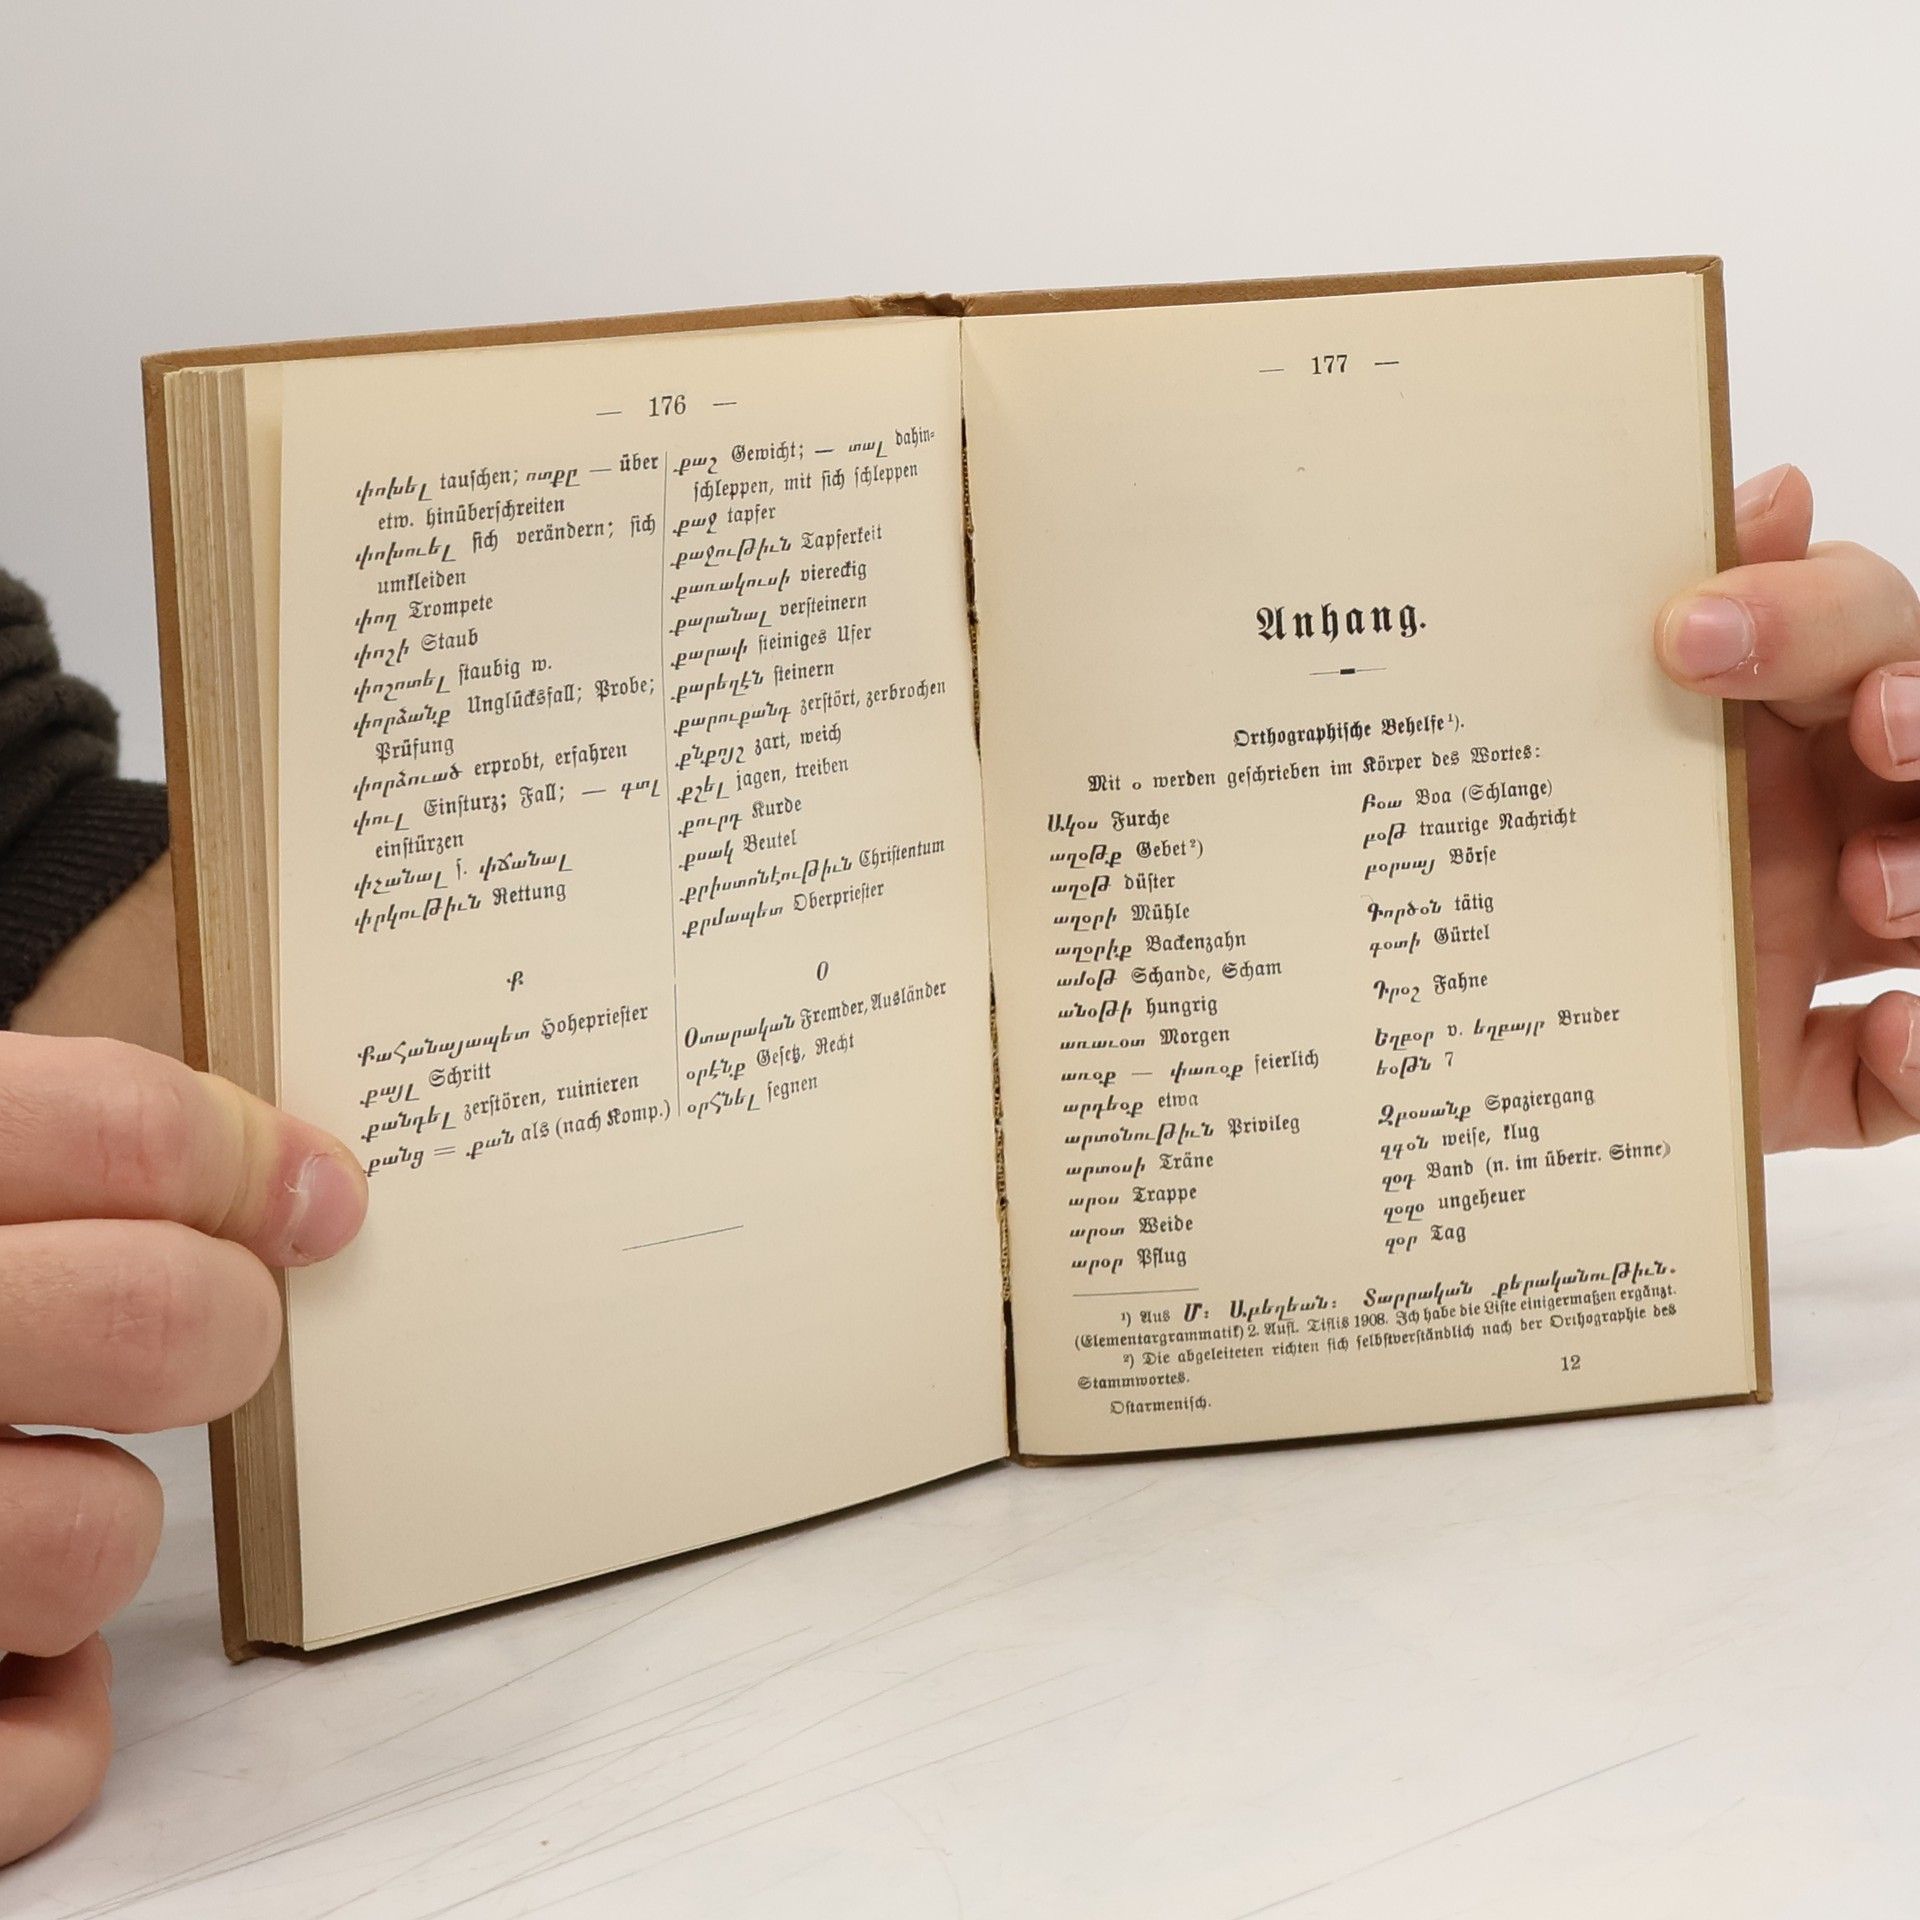 — 176 —
փոխել tauſchen; ոտքը — über
etw. hinüberſchreiten
փոխուել ſich verändern; ſich
umkleiden
փող Trompete
փոշի Staub
փոշոտել ſtaubig w.
փորձանք Unglücksfall; Probe;
Prüfung
փորձուած erprobt, erfahren
փուլ Einſturz; Fall; — գալ
einſtürzen
փչանալ ſ. փճանալ
փրկութիւն Rettung
Ք
Քահանայապետ Hoheprieſter
քայլ Schritt
քանդել zerſtören, ruinieren
քանց = քան als (nach Komp.)
քաշ Gewicht; — տալ dahin-
ſchleppen, mit ſich ſchleppen
քաջ tapfer
քաջութիւն Tapferkeit
քառակուսի viereckig
քարանալ verſteinern
քարափ ſteiniges Ufer
քարեղէն ſteinern
քարուքանդ zerſtört, zerbrochen
քնքոյշ zart, weich
քշել jagen, treiben
քուրդ Kurde
քսակ Beutel
քրիստոնէութիւն Chriſtentum
քրմապետ Oberprieſter
Օ
Օտարական Fremder, Ausländer
օրէնք Geſetz, Recht
օրհնել ſegnen
— 177 —
Anhang.
Orthographiſche Behelfe¹).
Mit օ werden geſchrieben im Körper des Wortes:
Ակօս Furche
աղօթք Gebet²)
աղօթ düſter
աղօրի Mühle
աղօրիք Backenzahn
ամօթ Schande, Scham
անօթի hungrig
առաւօտ Morgen
առօք — փառօք feierlich
արդեօք etwa
արտօնութիւն Privileg
արտօսի Träne
արօս Trappe
արօտ Weide
արօր Pflug
Բօա Boa (Schlange)
բօթ traurige Nachricht
բօրսայ Börſe
Գործօն tätig
գօտի Gürtel
Դրօշ Fahne
Եղբօր v. եղբայր Bruder
եօթն 7
Զբօսանք Spaziergang
զգօն weiſe, klug
զօդ Band (n. im übertr. Sinne)
զօզօ ungeheuer
զօր Tag
¹) Aus Մ։ Աբեղեան։ Տարրական քերականութիւն.
(Elementargrammatik) 2. Aufl. Tiflis 1908. Ich habe die Liſte einigermaßen ergänzt.
²) Die abgeleiteten richten ſich ſelbſtverſtändlich nach der Orthographie des
Stammwortes.
Oſtarmeniſch.
12